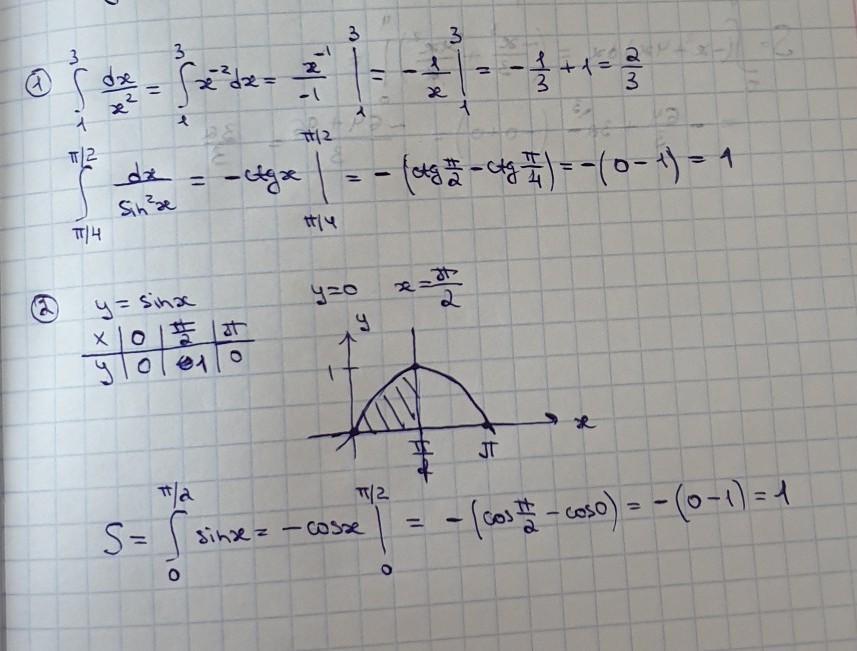 ① ∫₁³ dx/x² = ∫₁³ x⁻²dx = x⁻¹/-1 |₁³ = - 1/x |₁³ = - 1/3 + 1 = 2/3
∫_{π/4}^{π/2} dx/sin²x = -ctgx |_{π/4}^{π/2} = - (ctg π/2 - ctg π/4) = - (0 - 1) = 1
② y = sinx y=0 x = π/2
x | 0 | π/2 | π
y | 0 | 1 | 0
y
1
x
π/2 π
S = ∫₀^{π/2} sinx = - cosx |₀^{π/2} = - (cos π/2 - cos0) = - (0 - 1) = 1